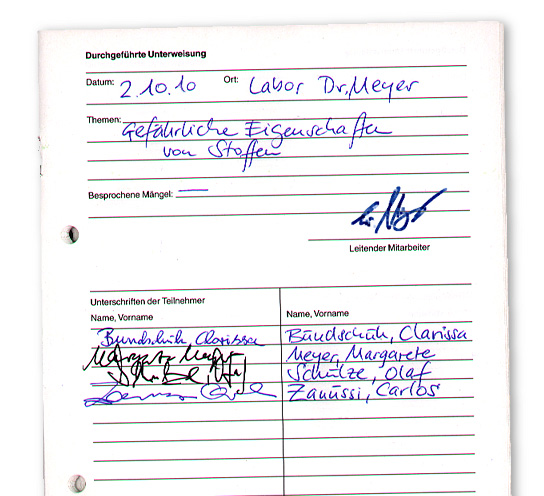 Durchgeführte Unterweisung
Datum: 2.10.10 Ort: Labor Dr. Meyer
Themen: Gefährliche Eigenschaften
von Stoffen
Besprochene Mängel: —
Leitender Mitarbeiter
Unterschriften der Teilnehmer
Name, Vorname Name, Vorname
Bundschuh, Clarissa Bundschuh, Clarissa
Margarete Meyer Meyer, Margarete
Schulze, Olaf
Zanussi, Carlos